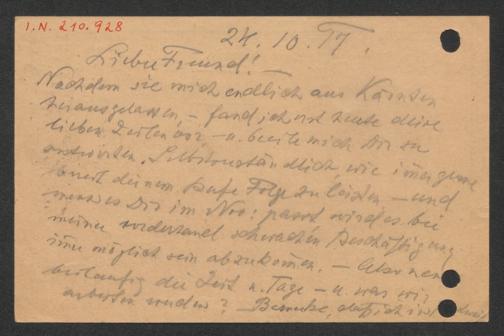 I.N. 210.928
24.10.17.
Lieber Freund!
Nachdem sie mich endlich aus Kärnten
herausgelassen, – fand ich erst heute deine
lieben Zeilen vor – u. beeile mich Dir zu
antworten. Selbstverständlich, wie immer gerne
bereit deinem Rufe Folge zu leisten – und
wenn es Dir im Nov: passt wird es bei
meiner
schwachen Beschäftigung
mir möglich sein abzukommen. – Also nenne
beiläufig die Zeit u. Tage – u. was wir
arbeiten werden? Bemerke, daß ich